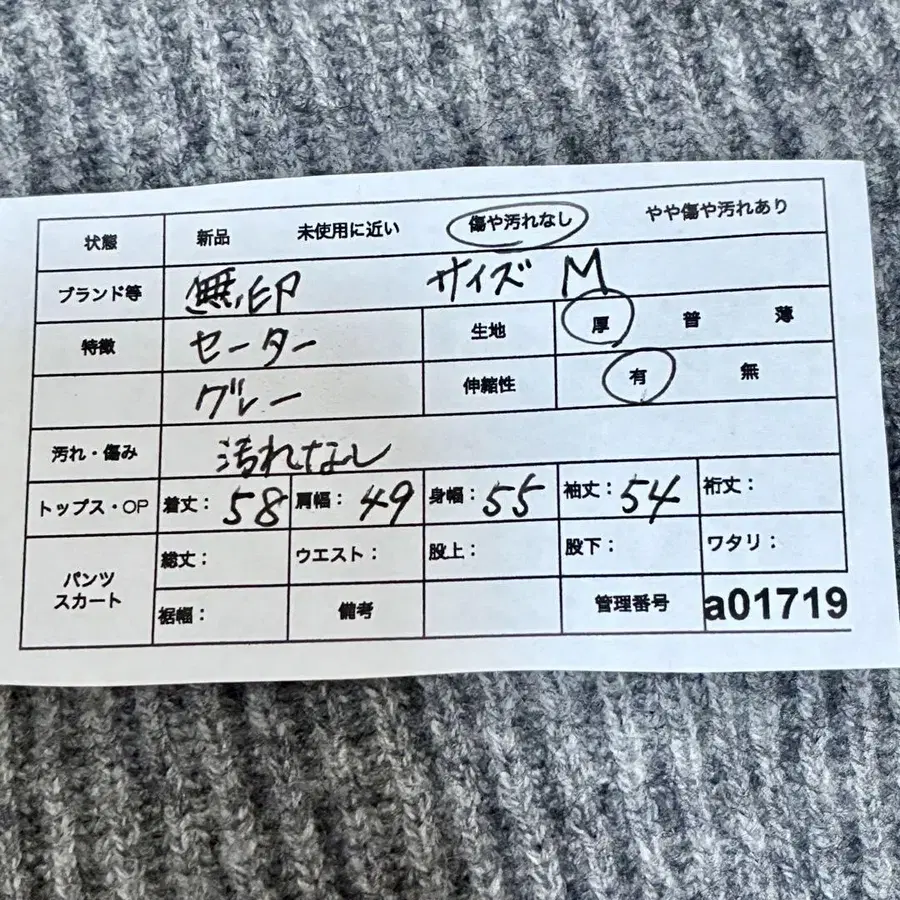 状態 新品 未使用に近い 傷や汚れなし やや傷や汚れあり
ブランド等 無印 サイズ M
特徴 セーター 生地 厚 普 薄
グレー 伸縮性 有 無
汚れ・傷み 汚れなし
トップス・OP 着丈：58 肩幅：49 身幅：55 袖丈：54 裄丈：
パンツ
スカート
総丈： ウエスト： 股上： 股下： ワタリ：
裾幅： 備考 管理番号 a01719